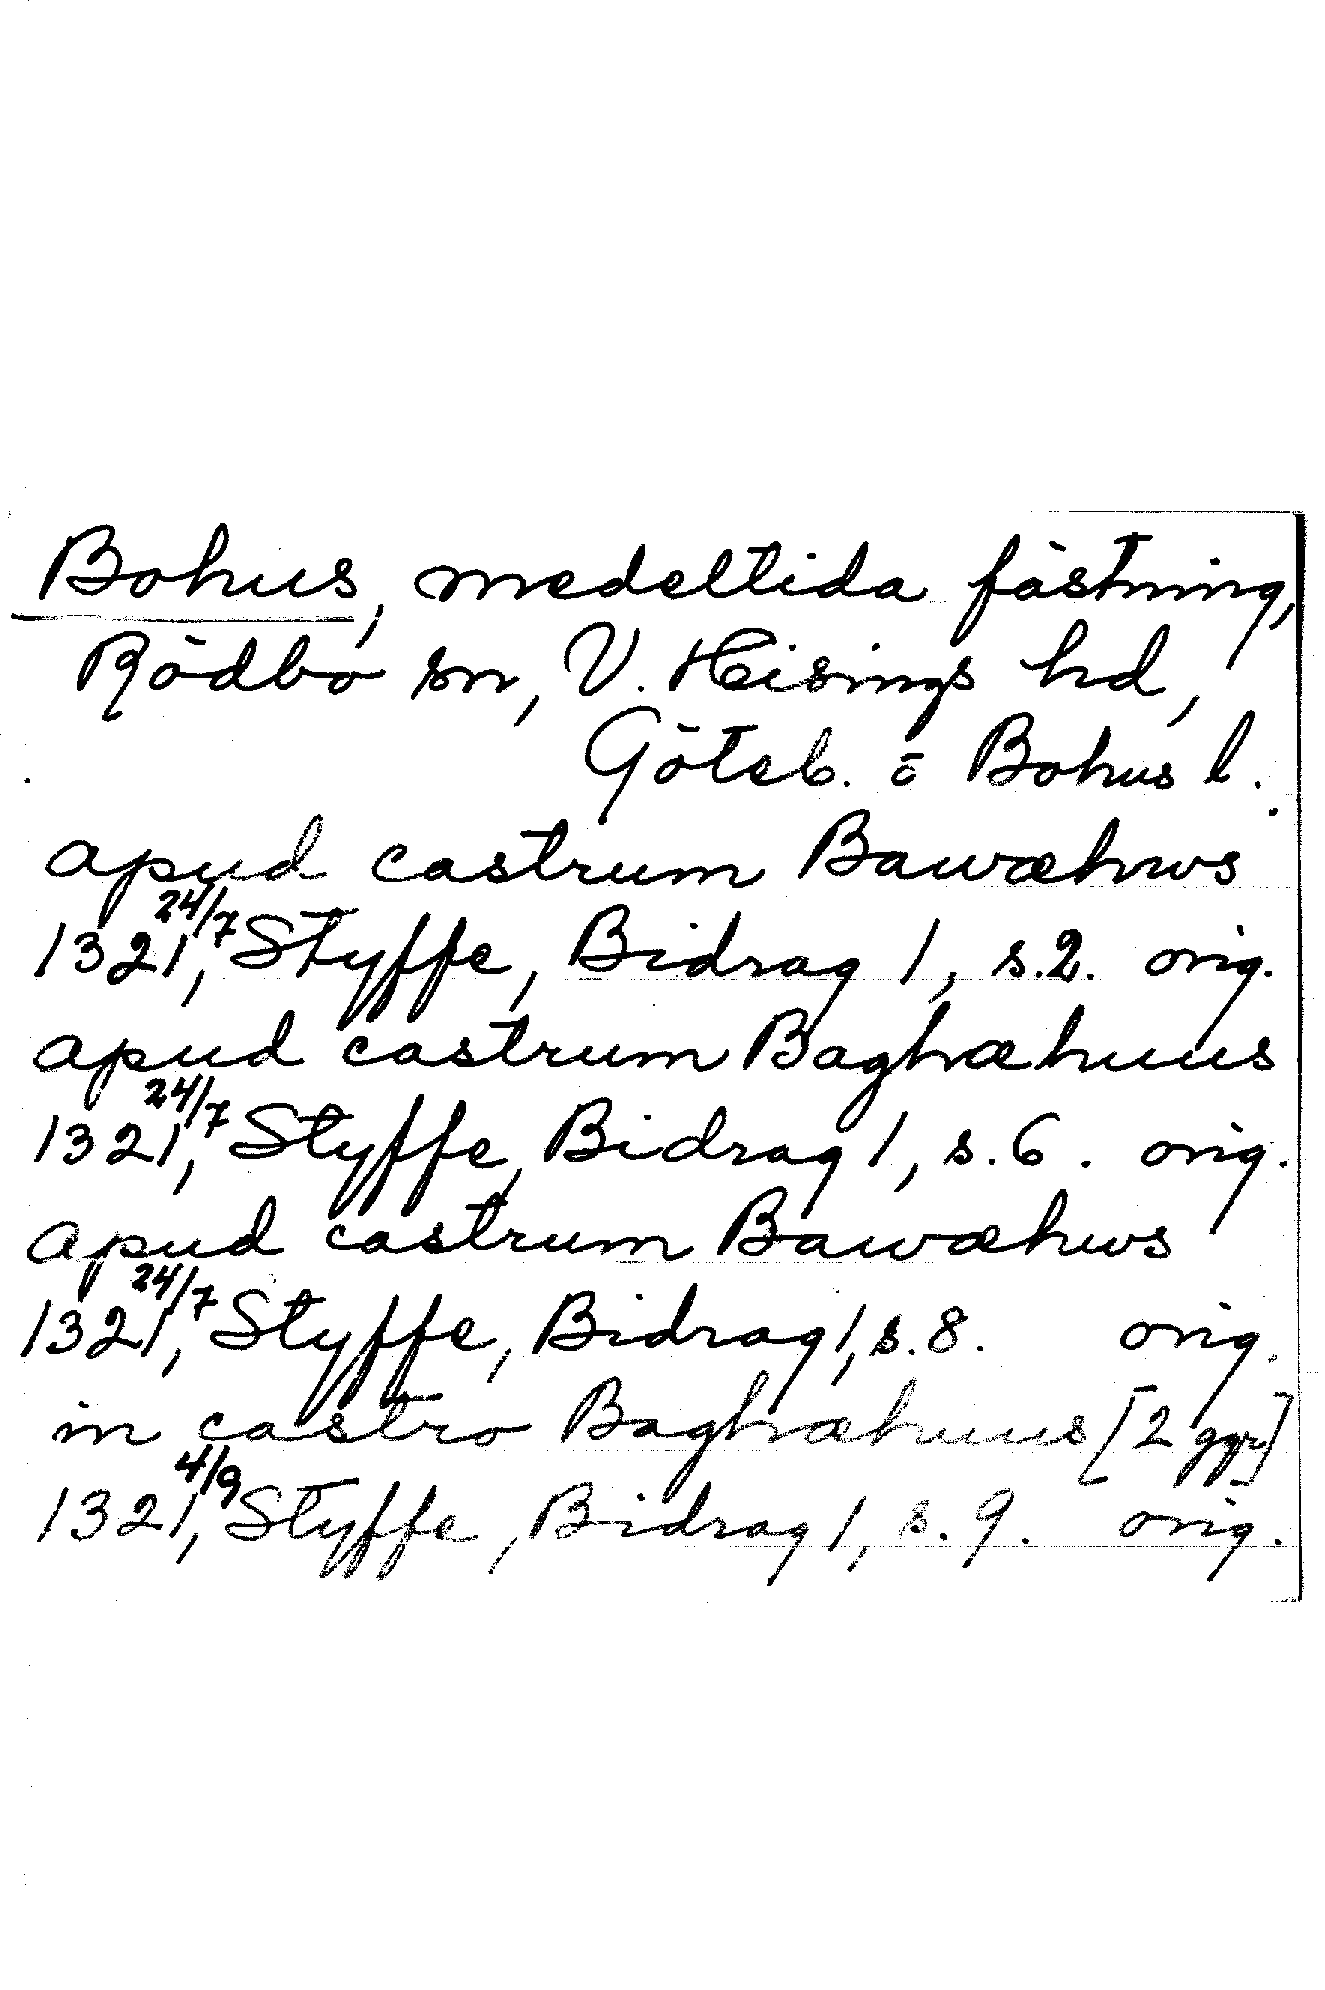 Bohus, medeltida fästning,
Rödbo sn, V. Hisings hd,
Göteb. o Bohus l.
apud castrum Bawæhws
1321 24/7, Styffe, Bidrag 1, s.2. orig.
apud castrum Baghæhuus
1321 24/7, Styffe, Bidrag 1, s.6. orig.
apud castrum Bawæhws
1321 24/7, Styffe, Bidrag 1, s.8. orig.
in castro Baghæhuus [2 ggr]
1321 4/9, Styffe, Bidrag 1, s.9. orig.